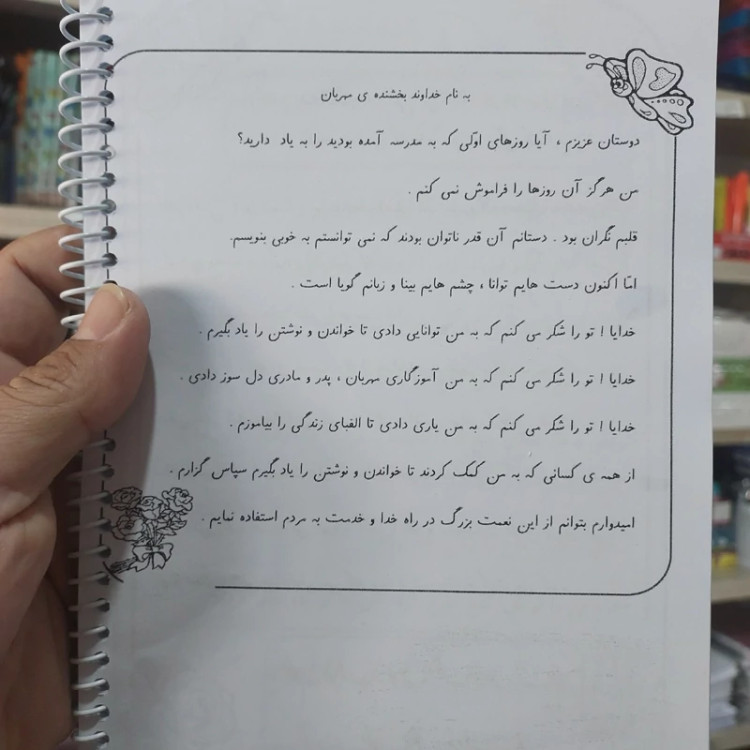 به نام خداوند بخشنده ی مهربان
دوستان عزیزم ، آیا روزهای اوّلی که به مدرسه آمده بودید را به یاد دارید؟
من هرگز آن روزها را فراموش نمی کنم .
قلبم نگران بود . دستانم آن قدر ناتوان بودند که نمی توانستم به خوبی بنویسم.
امّا اکنون دست هایم توانا ، چشم هایم بینا و زبانم گویا است .
خدایا ! تو را شکر می کنم که به من توانایی دادی تا خواندن و نوشتن را یاد بگیرم .
خدایا ! تو را شکر می کنم که به من آموزگاری مهربان ، پدر و مادری دل سوز دادی .
خدایا ! تو را شکر می کنم که به من یاری دادی تا الفبای زندگی را بیاموزم .
از همه ی کسانی که به من کمک کردند تا خواندن و نوشتن را یاد بگیرم سپاس گزارم .
امیدوارم بتوانم از این نعمت بزرگ در راه خدا و خدمت به مردم استفاده نمایم .